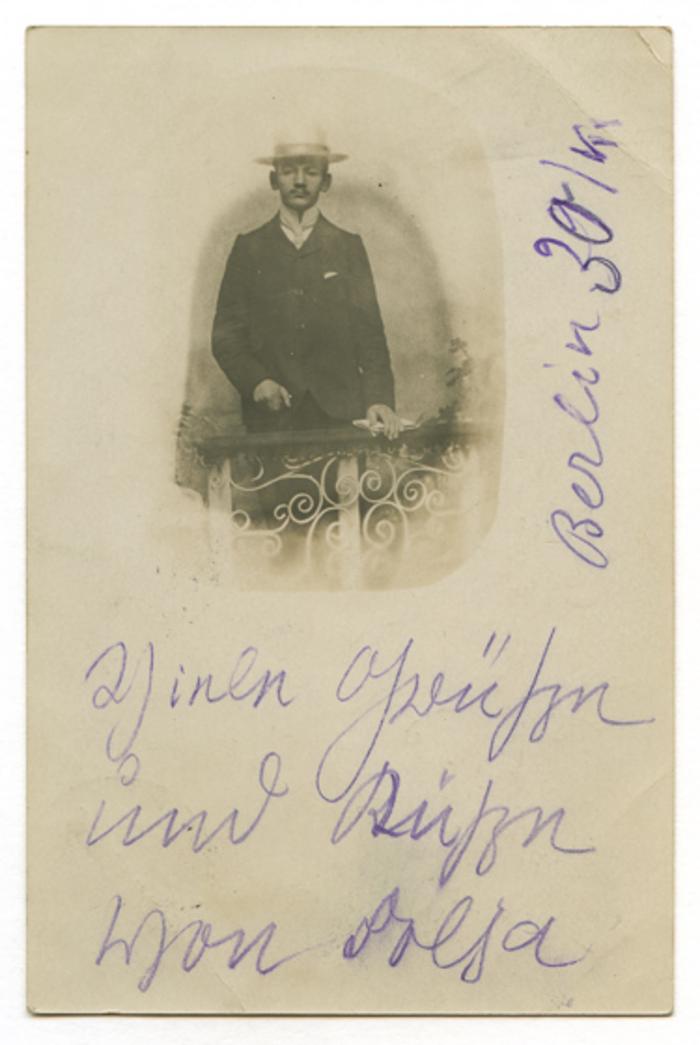 Berlin 30/VI
Vielen Grüßen
und Küßen
Von Dolja